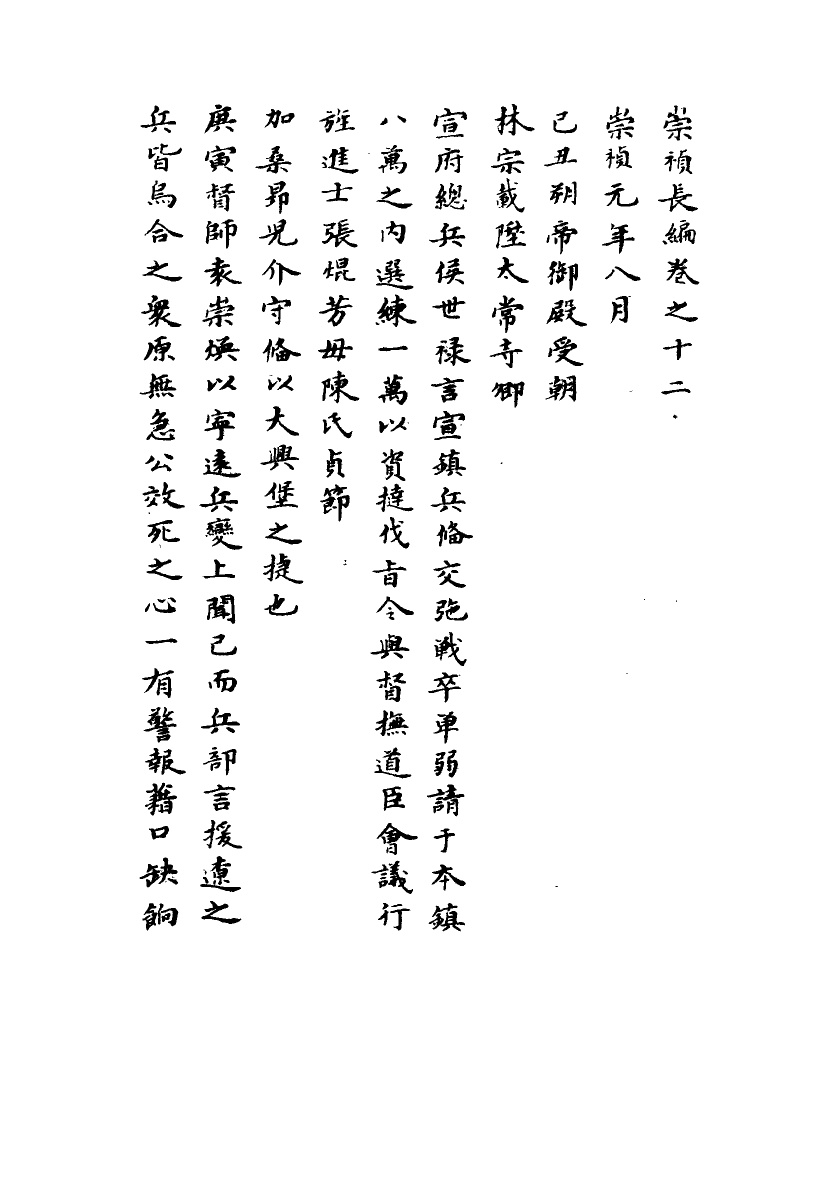 崇禎長編卷之十二
崇禎元年八月
己丑朔帝御殿受朝
林宗載陞太常寺卿
宣府總兵侯世禄言宣鎮兵俻交弛戦卒单弱請于本鎮
八萬之内選練一萬以資撻伐旨令與督撫道臣會議行
旌進士張焜芳母陳氏貞節
加桑昂児介守俻以大興堡之捷也
庚寅督師袁崇焕以寧遠兵變上聞已而兵部言援遼之
兵皆烏合之衆原無急公效死之心一有警報藉口缺餉